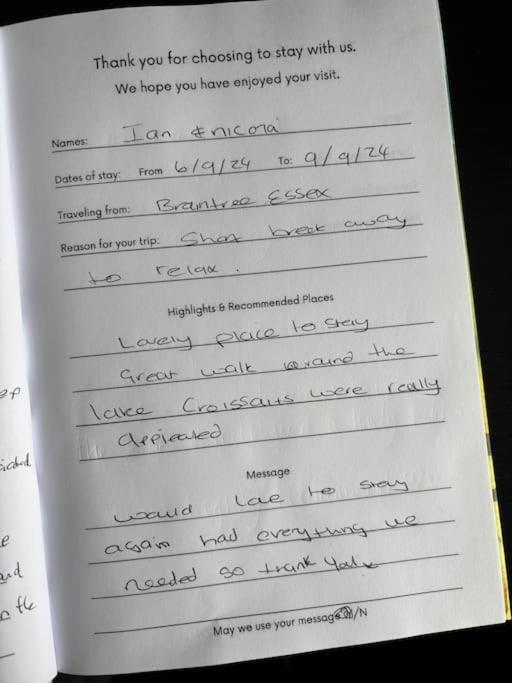 Thank you for choosing to stay with us.
We hope you have enjoyed your visit.
Names: Ian & nicola
Dates of stay: From 6/9/24 To: 9/9/24
Traveling from: Braintree Essex
Reason for your trip: Short break away
to relax.
Highlights & Recommended Places
Lovely place to stay
Great walk around the
lake Croissants were really
Message
would love to stay
again had everything we
needed so thank you x
May we use your message Y/N